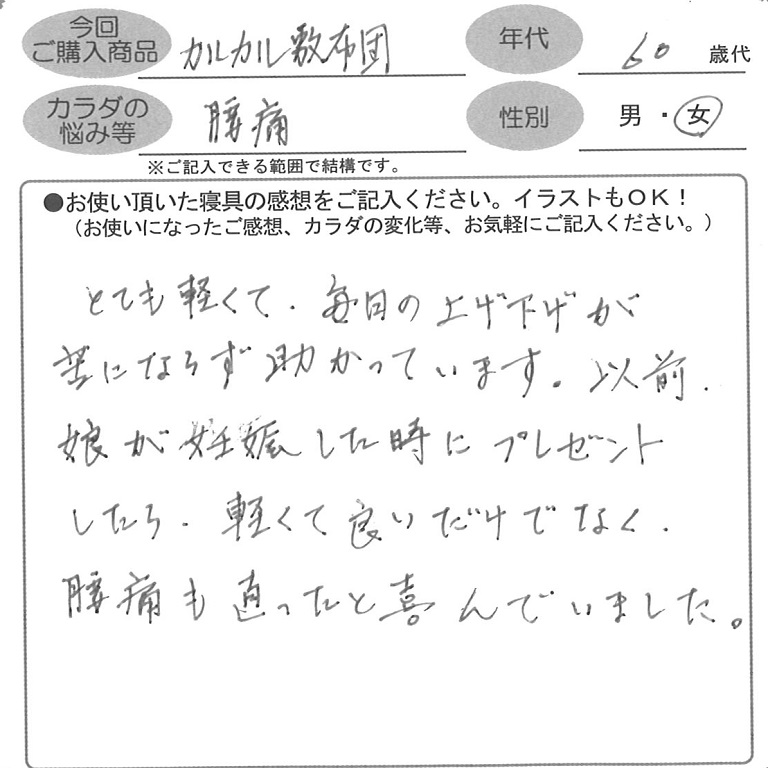 今回
ご購入商品 カルカル敷布団
年代 60 歳代
カラダの
悩み等 腰痛
性別 男・女
※ご記入できる範囲で結構です。
●お使い頂いた寝具の感想をご記入ください。イラストもOK!
(お使いになったご感想、カラダの変化等、お気軽にご記入ください。)
とても軽くて、毎日の上げ下げが
苦にならず助かっています。以前、
娘が妊娠した時にプレゼント
したら、軽くて良いだけでなく、
腰痛も直ったと喜んでいました。